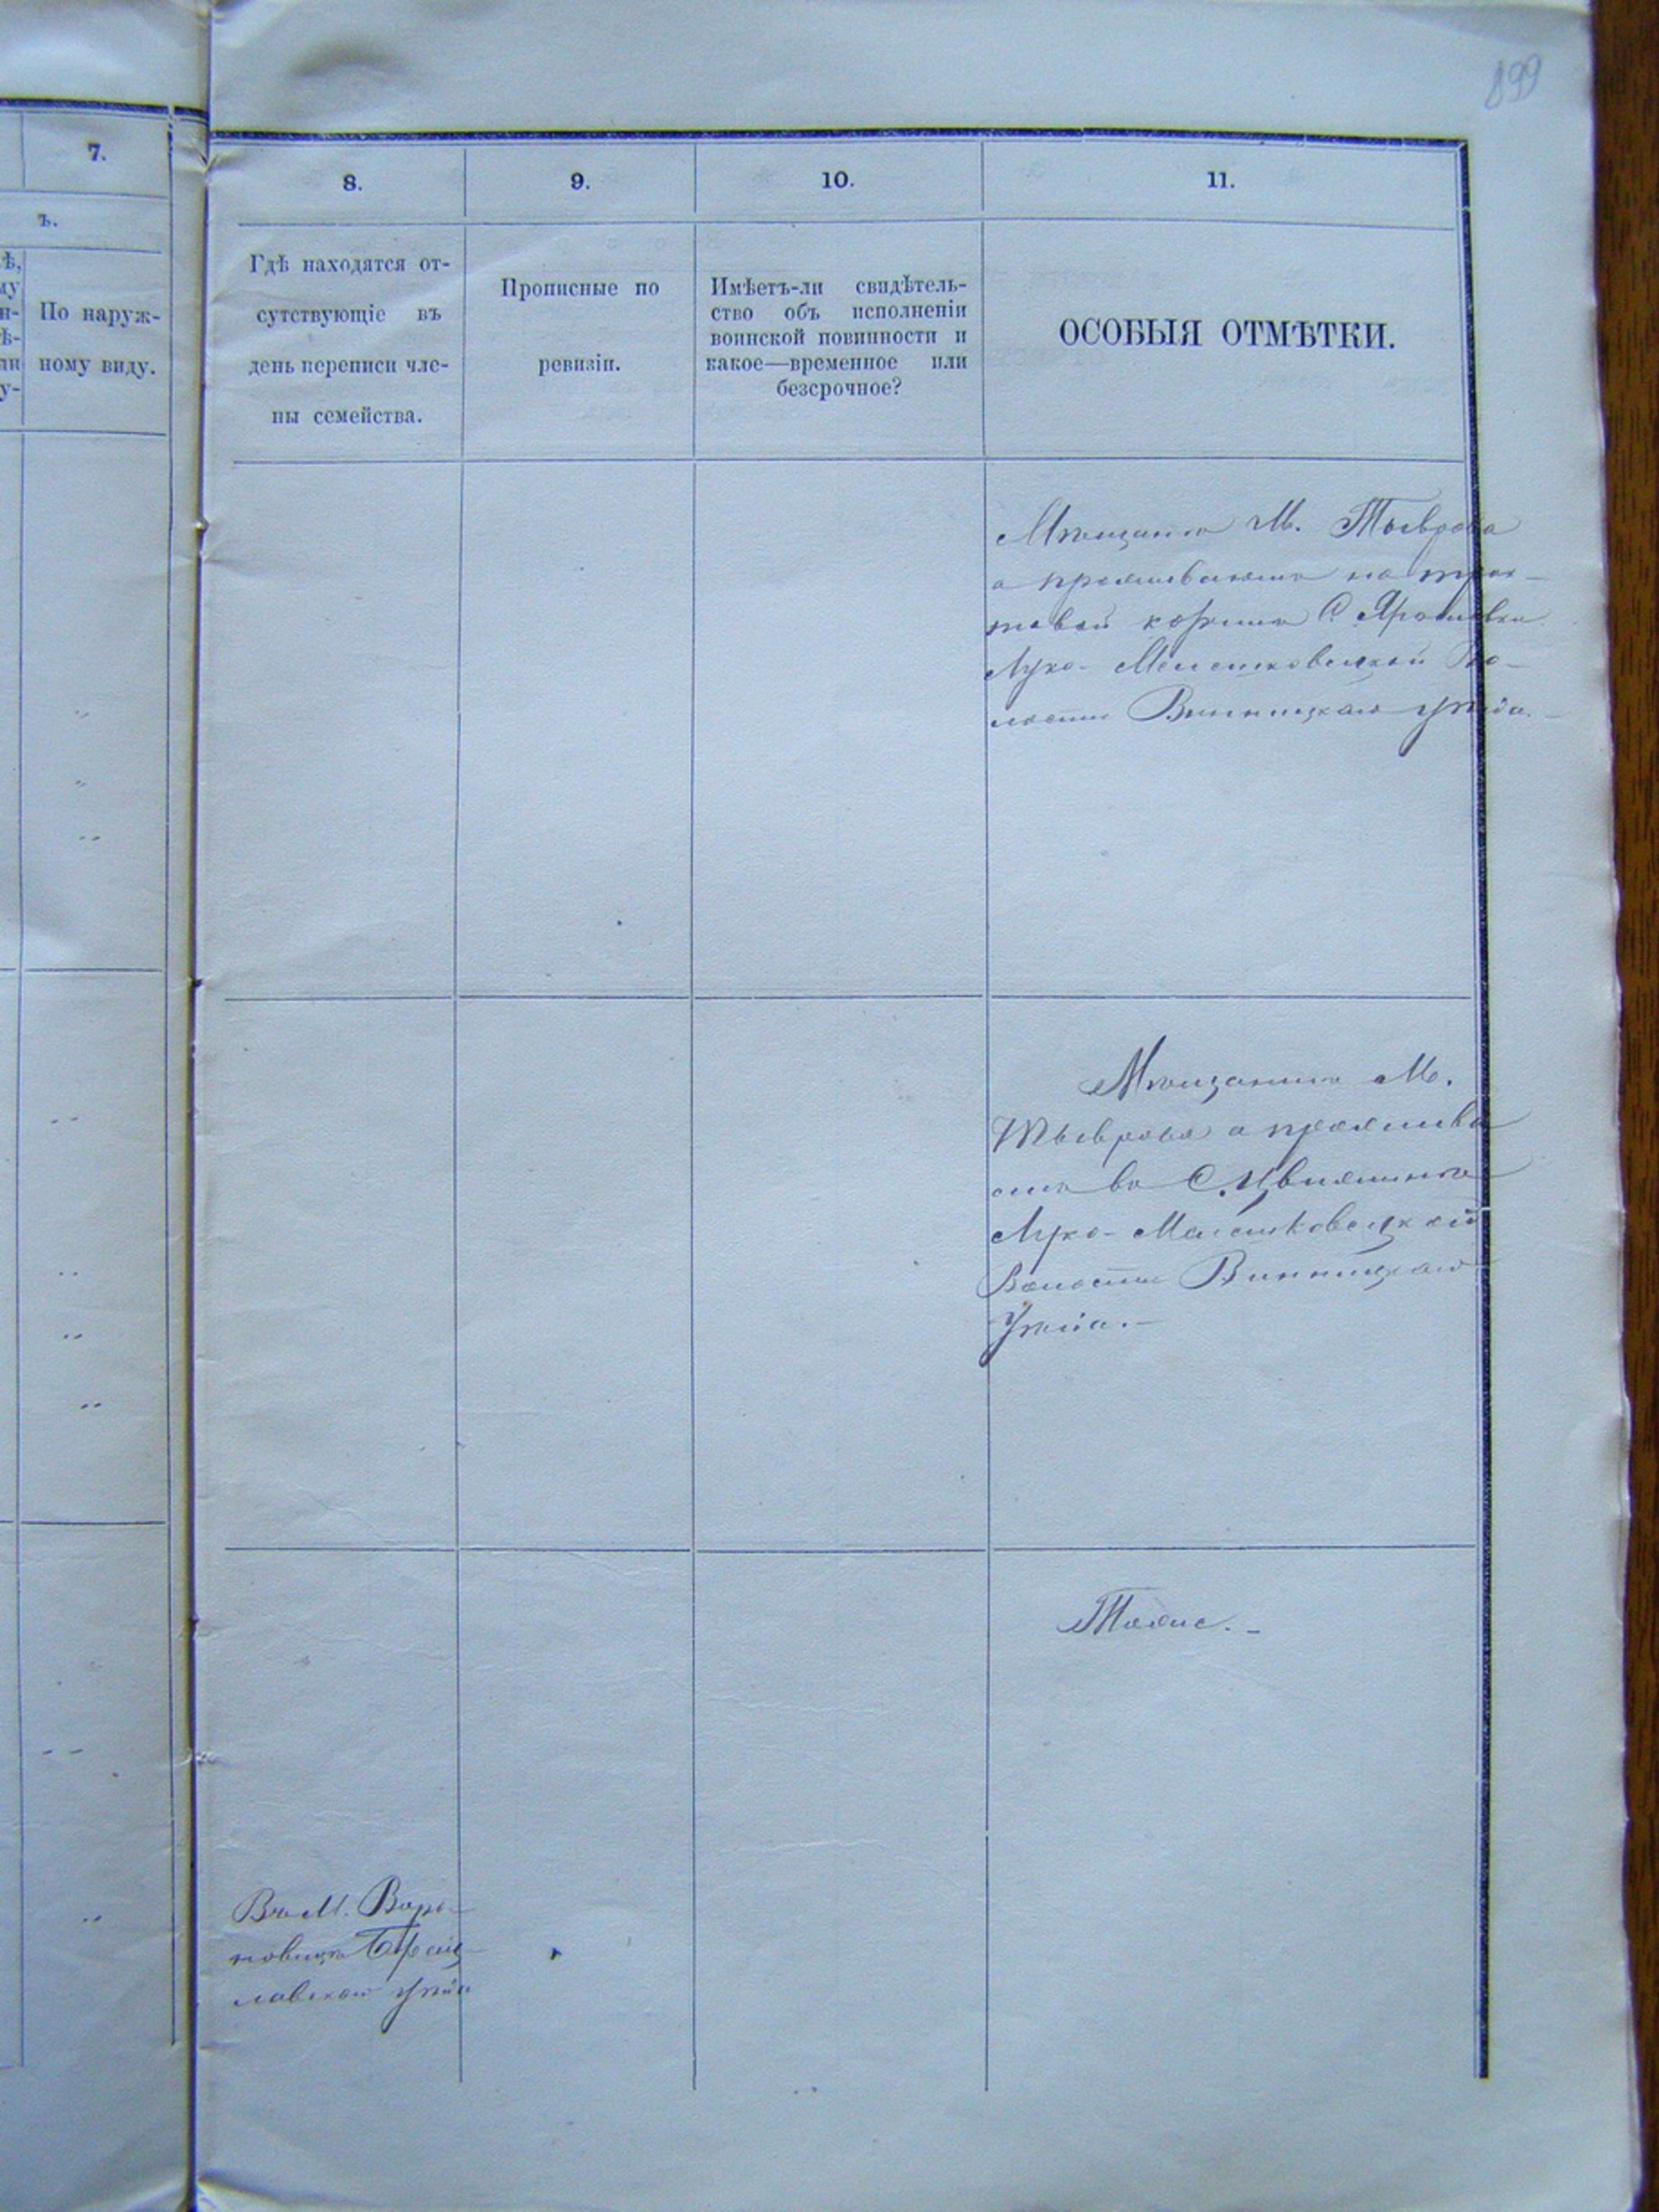 899
7.
8.
9.
10.
11.
ъ.
По наруж-
ному виду.
Гдѣ находятся от-
сутствующіе въ
день переписи чле-
ны семейства.
Прописные по
ревизіи.
Имѣетъ-ли свидѣтель-
ство объ исполненіи
воинской повинности и
какое—временное или
безсрочное?
ОСОБЫЯ ОТМѢТКИ.
М. Тыврова
а проживаетъ на трак-
товой корчмѣ С. Ярошевки
Луко-Мелешковецкой Во-
лости Винницкаго уѣзда.—
Мѣщанинъ М.
Тыврова а прожива
етъ въ С.
Луко-Мелешковецкой
Волости Винницкаго
Уѣзда.—
Тоже.—
Въ М. Воро-
новицѣ Брац-
лавскаго уѣзда